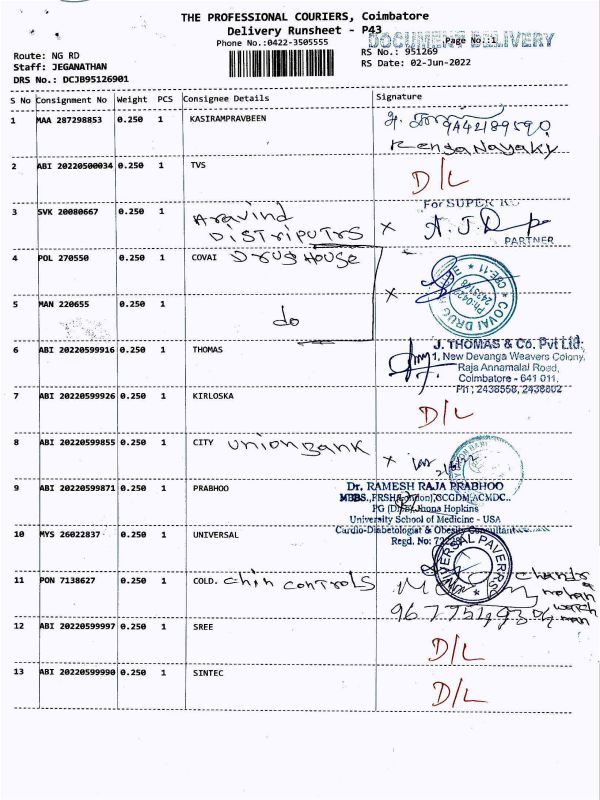 THE PROFESSIONAL COURIERS, Coimbatore
Delivery Runsheet - P43
DOCUMENT DELIVERY
Phone No.:0422-3505555
Page No.:1
Route: NG RD
RS No.: 951269
Staff: JEGANATHAN
RS Date: 02-Jun-2022
DRS No.: DCJB95126901
S No Consignment No Weight PCS Consignee Details Signature
1 MAA 287298853 0.250 1 KASIRAMPRAVBEEN
9442189590
RengaNayaky
2 ABI 20220500034 0.250 1 TVS D/L
3 SVK 20080667 0.250 1 Aravind DISTRIPUTRS x
For SUPER
A.J.
PARTNER
4 POL 270550 0.250 1 COVAI Drug House
COVAI DRUG
5 MAN 220655 0.250 1 do x
6 ABI 20220599916 0.250 1 THOMAS
J. THOMAS & Co. Pvt Ltd.
1, New Devanga Weavers Colony,
Raja Annamalai Road,
Coimbatore - 641 011.
Ph : 2438558, 2438802
7 ABI 20220599926 0.250 1 KIRLOSKA D/L
8 ABI 20220599855 0.250 1 CITY Union Bank x
9 ABI 20220599871 0.250 1 PRABHOO
Dr. RAMESH RAJA PRABHOO
MBBS.,
University School of Medicine - USA
Cardio-Diabetologist & Obesity Consultant
Regd. No:
10 MYS 26022837 0.250 1 UNIVERSAL
UNIVERSAL PAVERRS
11 PON 7138627 0.250 1 COLD. Chin controls
Chandra
mohan
watch
man
12 ABI 20220599997 0.250 1 SREE D/L
13 ABI 20220599990 0.250 1 SINTEC D/L